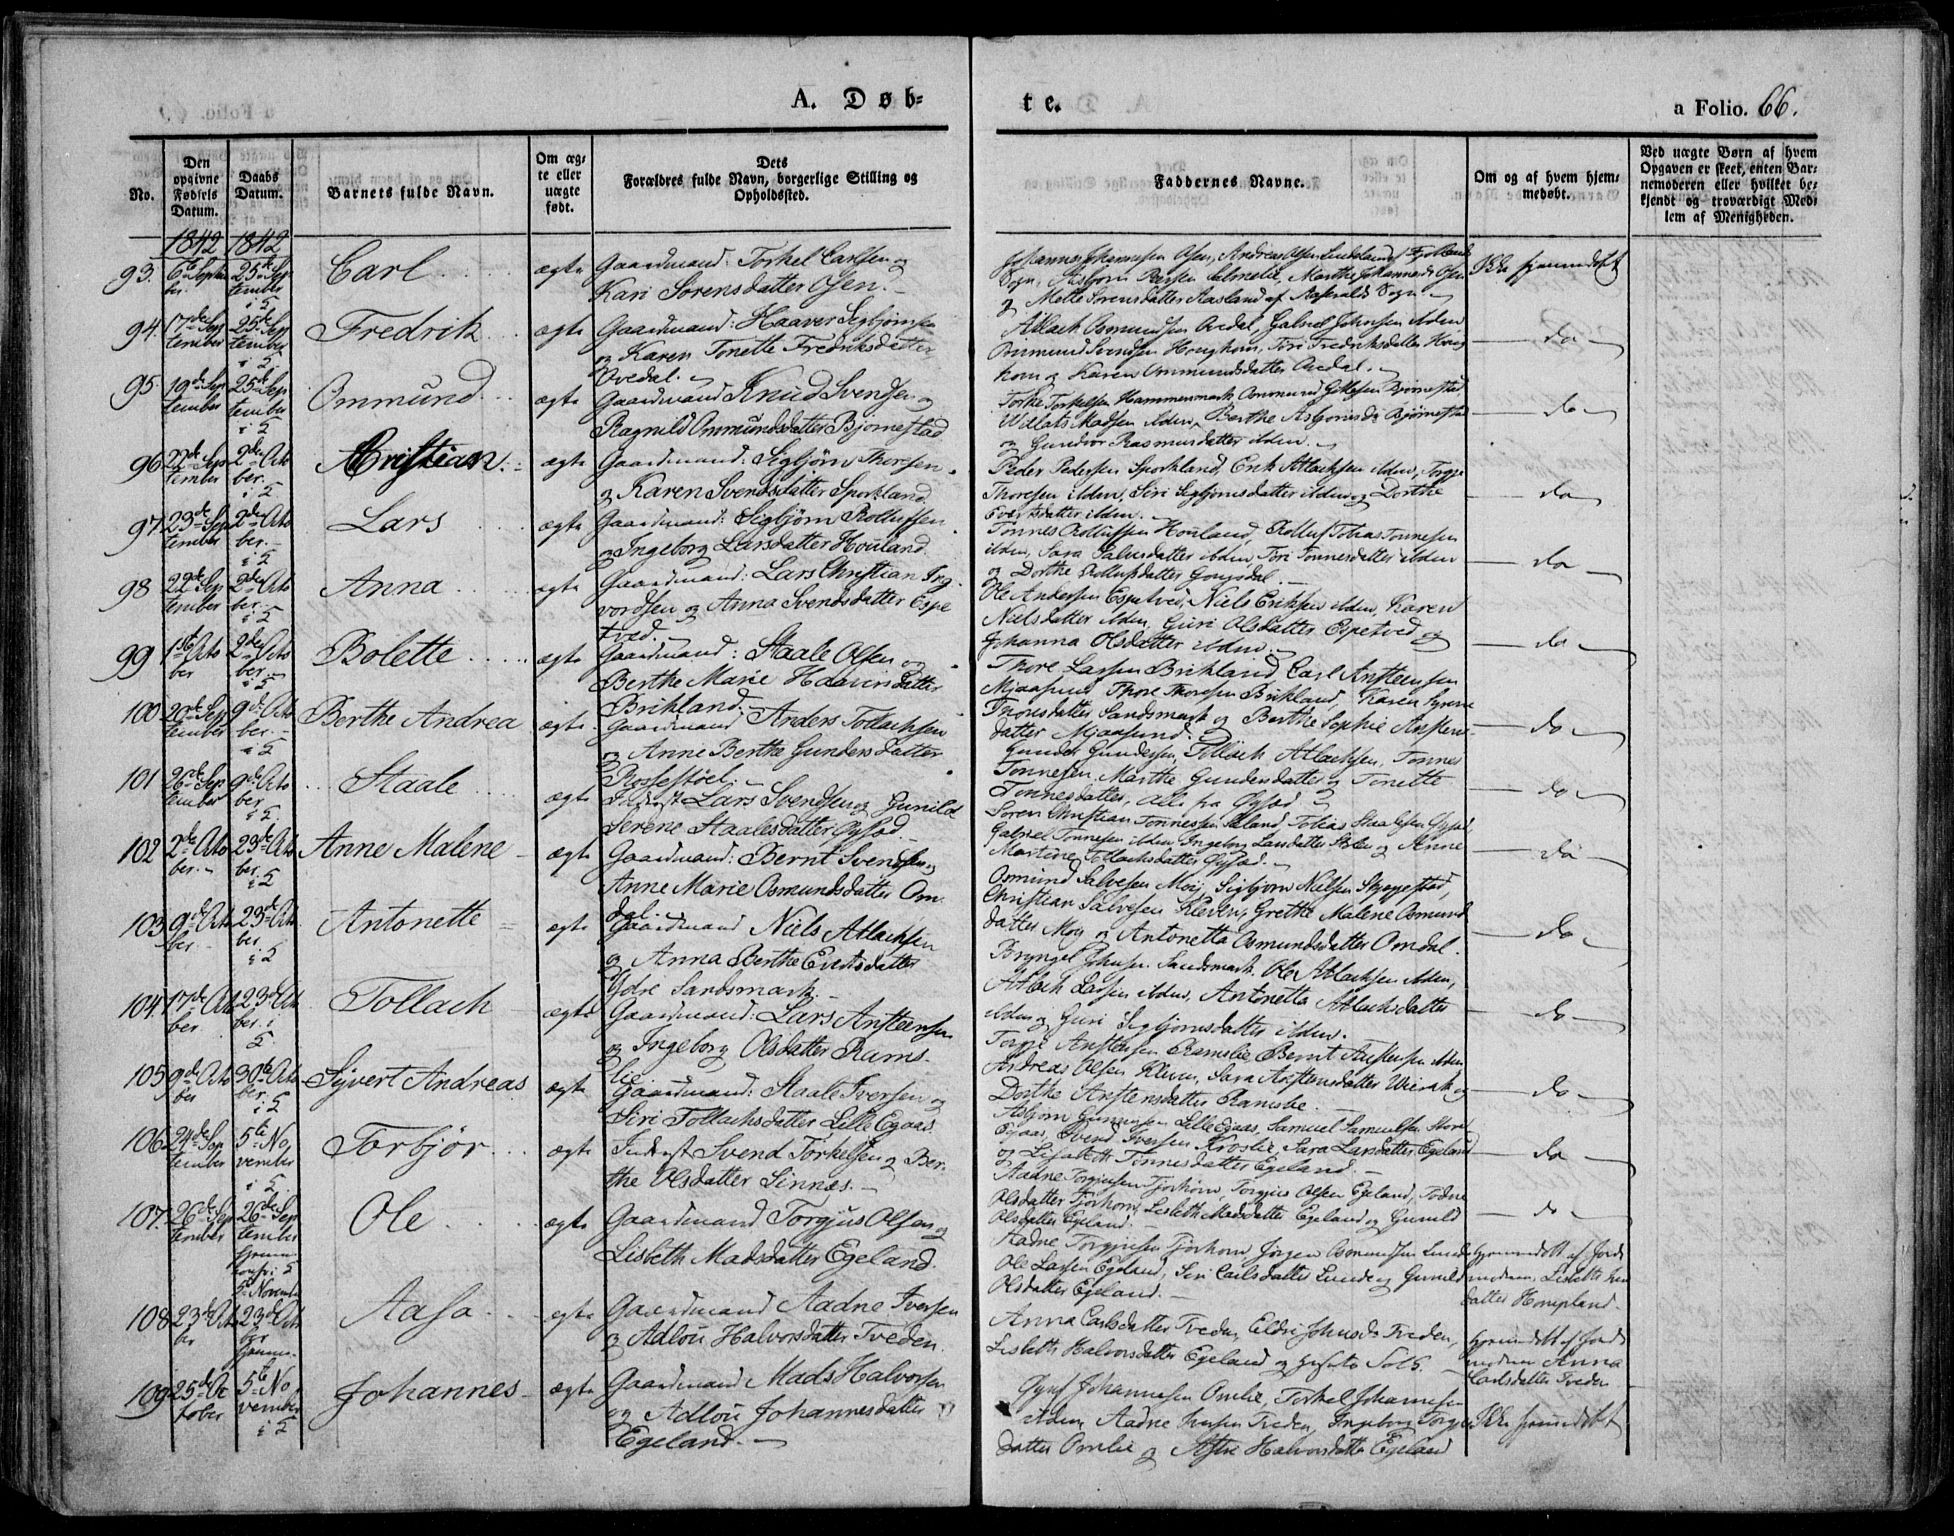 A. Døb-
te.
a Folio. 66.
No.
Den opgivne Fødsels Datum.
Daabs Datum.
Barnets fulde Navn.
Om ægte eller uægte født.
Dets Forældres fulde Navn, borgerlige Stilling og Opholdssted.
Faddernes Navne.
Om og af hvem hjemmedøbt.
Ved uægte Børn af hvem Opgaven er skeet, enten Barnemoderen eller hvilket bekjendt og troværdigt Medlem af Menigheden.
1842 1842
93. 6te Septem
ber. 25de Sep
tember
i S
Carl
ægte
Gaardmand: Torkel Carlsen og
Kari Sørensdatter Osen.
Johannes Johannesen Osen, Andreas Olsen
Sogn, Marthe Johannesd. Osen
og Mette Sørensdatter Aasland af Aaseralds Sogn.
Ikke hjemmedøbt
94. 17de Sep
tember 25de Sep
tember
i S
Fredrik
ægte
Gaardmand: Haaver Sigbjørnsen
og Karen Tonette Fredriksdatter
Ovedal.
Atlach Osmundsen Ovedal, Gabriel Johnsen ibden
Ommund Svendsen Houghom, Siri Fredriksdatter Houg
hom og Karen Ommundsdatter Ovedal.
do
95. 19de Sep
tember 25de Sep
tember
i S
Ommund
ægte
Gaardmand Knud Svendsen og
Ragnild Ommundsdatter Bjørnestad
Torkel Torkelsen Hammersmark Ommund Bjørnestad,
Madsen ibden, Berthe Asbjørnsd. Bjørnestad
og Gundvor Rasmusdatter ibden.
do
96 22de Sep
tember 2den Octo
ber.
i S
Christian
ægte
Gaardmand: Sigbjørn Thoresen
og Karen Svendsdatter Sporkland
Peder Pedersen Sporkland, Erik Atlachsen ibden, Torgje
Thoresen ibden, Siri Sigbjørnsdatter ibden og Dorthe
Evertsdatter ibden.
do
97 23de Sep
tember 2den Octo
ber.
i S
Lars
ægte
Gaardmand: Sigbjørn Rolluffsen
og Ingeborg Larsdatter Houland.
Tønnes Rolluffsen Houland, Rolluf Tobias Tønnesen
ibden, Sara Salvesdatter ibden Siri Tønnesdatter ibden
og Dorthe Rollufsdatter
do
98 22de Sep
tember 2den Octo
ber
i S
Anna
ægte
Gaardmand: Lars Christian Ing
vordsen og Anna Svendsdatter Espe
tved.
Ole Andersen Espetved, Niels Eriksen ibden, Karen
Nielsdatter ibden, Guri Olsdatter Espetved og
Johanna Olsdatter ibden.
do
99 1ste Octo
ber 2den Octo
ber
i S
Bolette
ægte
Gaardmand: Staale Olsen og
Berthe Marie Haaversdatter
Birkland.
Thore Larsen Birkland, Carl Anstensen
Mjaasund, Thore Thoresen Birkland, Karen
Thoresdatter Sandsmark og Berthe Sophie Anstens-
datter Mjaasund.
do
100 20de Sep
tember 9de Octo
ber.
i S
Berthe Andrea
ægte
Gaardmand Anders Tollachsen
og Anne Berthe Gundersdatter
Rossestøel.
Gunder Gundersen, Tollach Atlachsen, Tønnes
Tønnesen, Marthe Gundersdatter og Tonette
Tønnesdatter, alle fra Øysæd.
do
101 26de Sep
tember 9de Octo
ber.
i S
Staale
ægte
Inderst Lars Svendsen og Gunild
Serene Staalesdatter Øysæd.
Søren Christian Tønnesen Tobias Staalesen Øysæd,
Gabriel Tønnesen ibden Ingeborg Larsdatter og Anne
Martine Tollachsdatter Øysæd.
do
102 2den Octo
ber. 23de Octo
ber.
i S
Anne Malene
ægte
Gaardmand: Bernt Svendsen og
Anne Marie Osmundsdatter Om
dal.
Osmund Salvesen Moy, Sigbjørn Nielsen Skreppestad,
Christian Salvesen Kleven, Grethe Malene Osmunds
datter Moy og Antonetta Osmundsdatter Omdal.
do
103 9de Octo
ber 23de Octo
ber
i S
Antonette
ægte
Gaardmand Niels Atlachsen
og Anna Berthe Evertsdatter
Ydre Sandsmark.
Bryngel Johnsen Sandsmark, Ole Atlachsen ibden,
Atlach Larsen ibden, Antonetta Atlachsdatter
ibden og Guri Sigbjørnsdatter ibden.
do
104. 17de Octo
ber 23de Octo
ber. i
S
Tollach
ægte
Gaardmand: Lars Anstensen
og Ingeborg Olsdatter Rams-
lie
Torgje Anstensen Ramslie, Bernt Anstensen ibden
Andreas Olsen Kleven, Sara Anstensdatter og
Dorthe Anstensdatter Ramslie.
do
105 9de Octo
ber 30te Octo
ber
i S
Syvert Andreas
ægte
Gaardmand: Staale Iversen og
Siri Tollachsdatter Lille Egaas.
Asbjørn Gunnersen Lille Egaas, Samuel Samuelsen Store
Egaas, Svend Iversen Kroslie, Sara Larsdatter Egeland
og Lisabeth Tønnesdatter Egeland.
do
106 24de Sep
tember 5te No
vember
i S
Torbjør
ægte
Inderst Svend Torkelsen og Ber-
the Olsdatter Sinnes.
Aadne Torgjusen Tjorhom, Torgjus Olsen Egeland, Todne
Olsdatter Tjorhom, Lisbeth Madsdatter Egeland og Gunild
Olsdatter Egeland.
do
107. 26de Sep
tember 26de Sep
tember
hjemme
5te November
Ole
ægte
Gaardmand Torgjus Olsen og
Lisbeth Madsdatter Egeland.
Aadne Torgjusen Tjorhom, Jørgen Osmundsen Lunde
Ole Larsen Egeland, Siri Carlsdatter Lunde og Gunild
Olsdatter Egeland.
hjemmedøbt af Jord
moderen, Lisbeth
datter
108 23de Octo
ber 23de Octo
ber
hjemme
Aasa
ægte
Gaardmand Aadne Iversen
og Adlou Halvorsdatter Tveden.
Anna Carlsdatter Tveden, Eldri Johnsd. Tveden,
Lisbeth Halvorsdatter Egeland og
hjemmedøbt af Jord
moderen Anna
Carlsdatter Tveden
109 25de Oc
tober 5te No
vember
i S
Johannes
ægte
Gaardmand Mads Halvorsen
og Adlou Johannesdatter
Egeland.
Johannesen Omlie, Torkel Johannesen
ibden, Aadne Tveden, Ingeborg Torgjus
datter Omlie og Halvorsdatter Egeland
Ikke hjemmedøbt